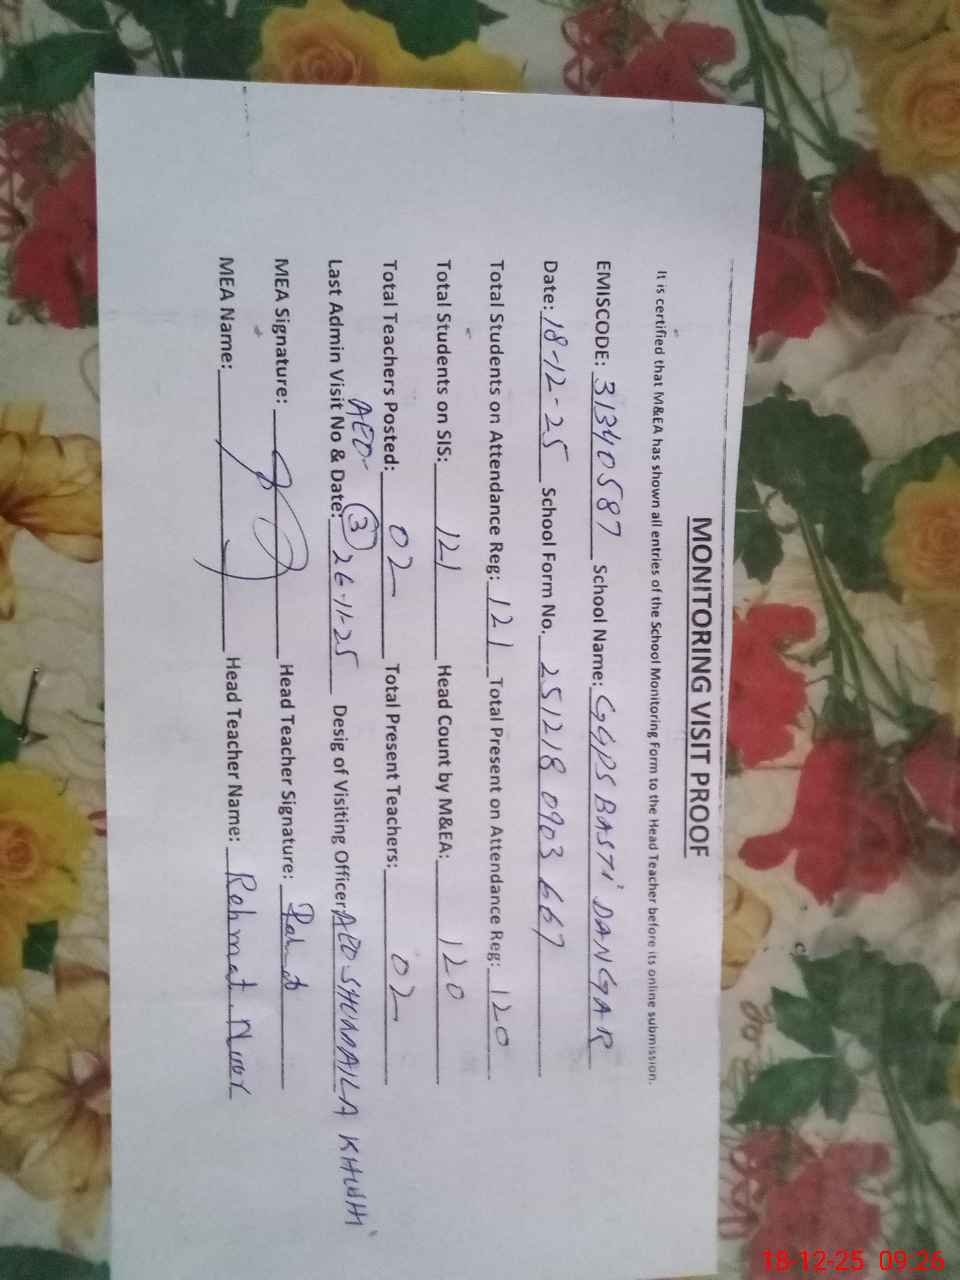 MONITORING VISIT PROOF
It is certified that M&EA has shown all entries of the School Monitoring Form to the Head Teacher before its online submission.
EMISCODE: 31340587 School Name: GGPS BASTI DANGAR
Date: 18-12-25 School Form No. 251218 0903 667
Total Students on Attendance Reg: 121 Total Present on Attendance Reg: 120
Total Students on SIS: 121 Head Count by M&EA: 120
Total Teachers Posted: 02 Total Present Teachers: 02
AEO-
Last Admin Visit No & Date: 3 26-11-25 Desig of Visiting Officer: AEO SHUMAILA KHUSHI
MEA Signature: Head Teacher Signature: Rehmat
MEA Name: Head Teacher Name: Rehmat Noor
18-12-25 09:26